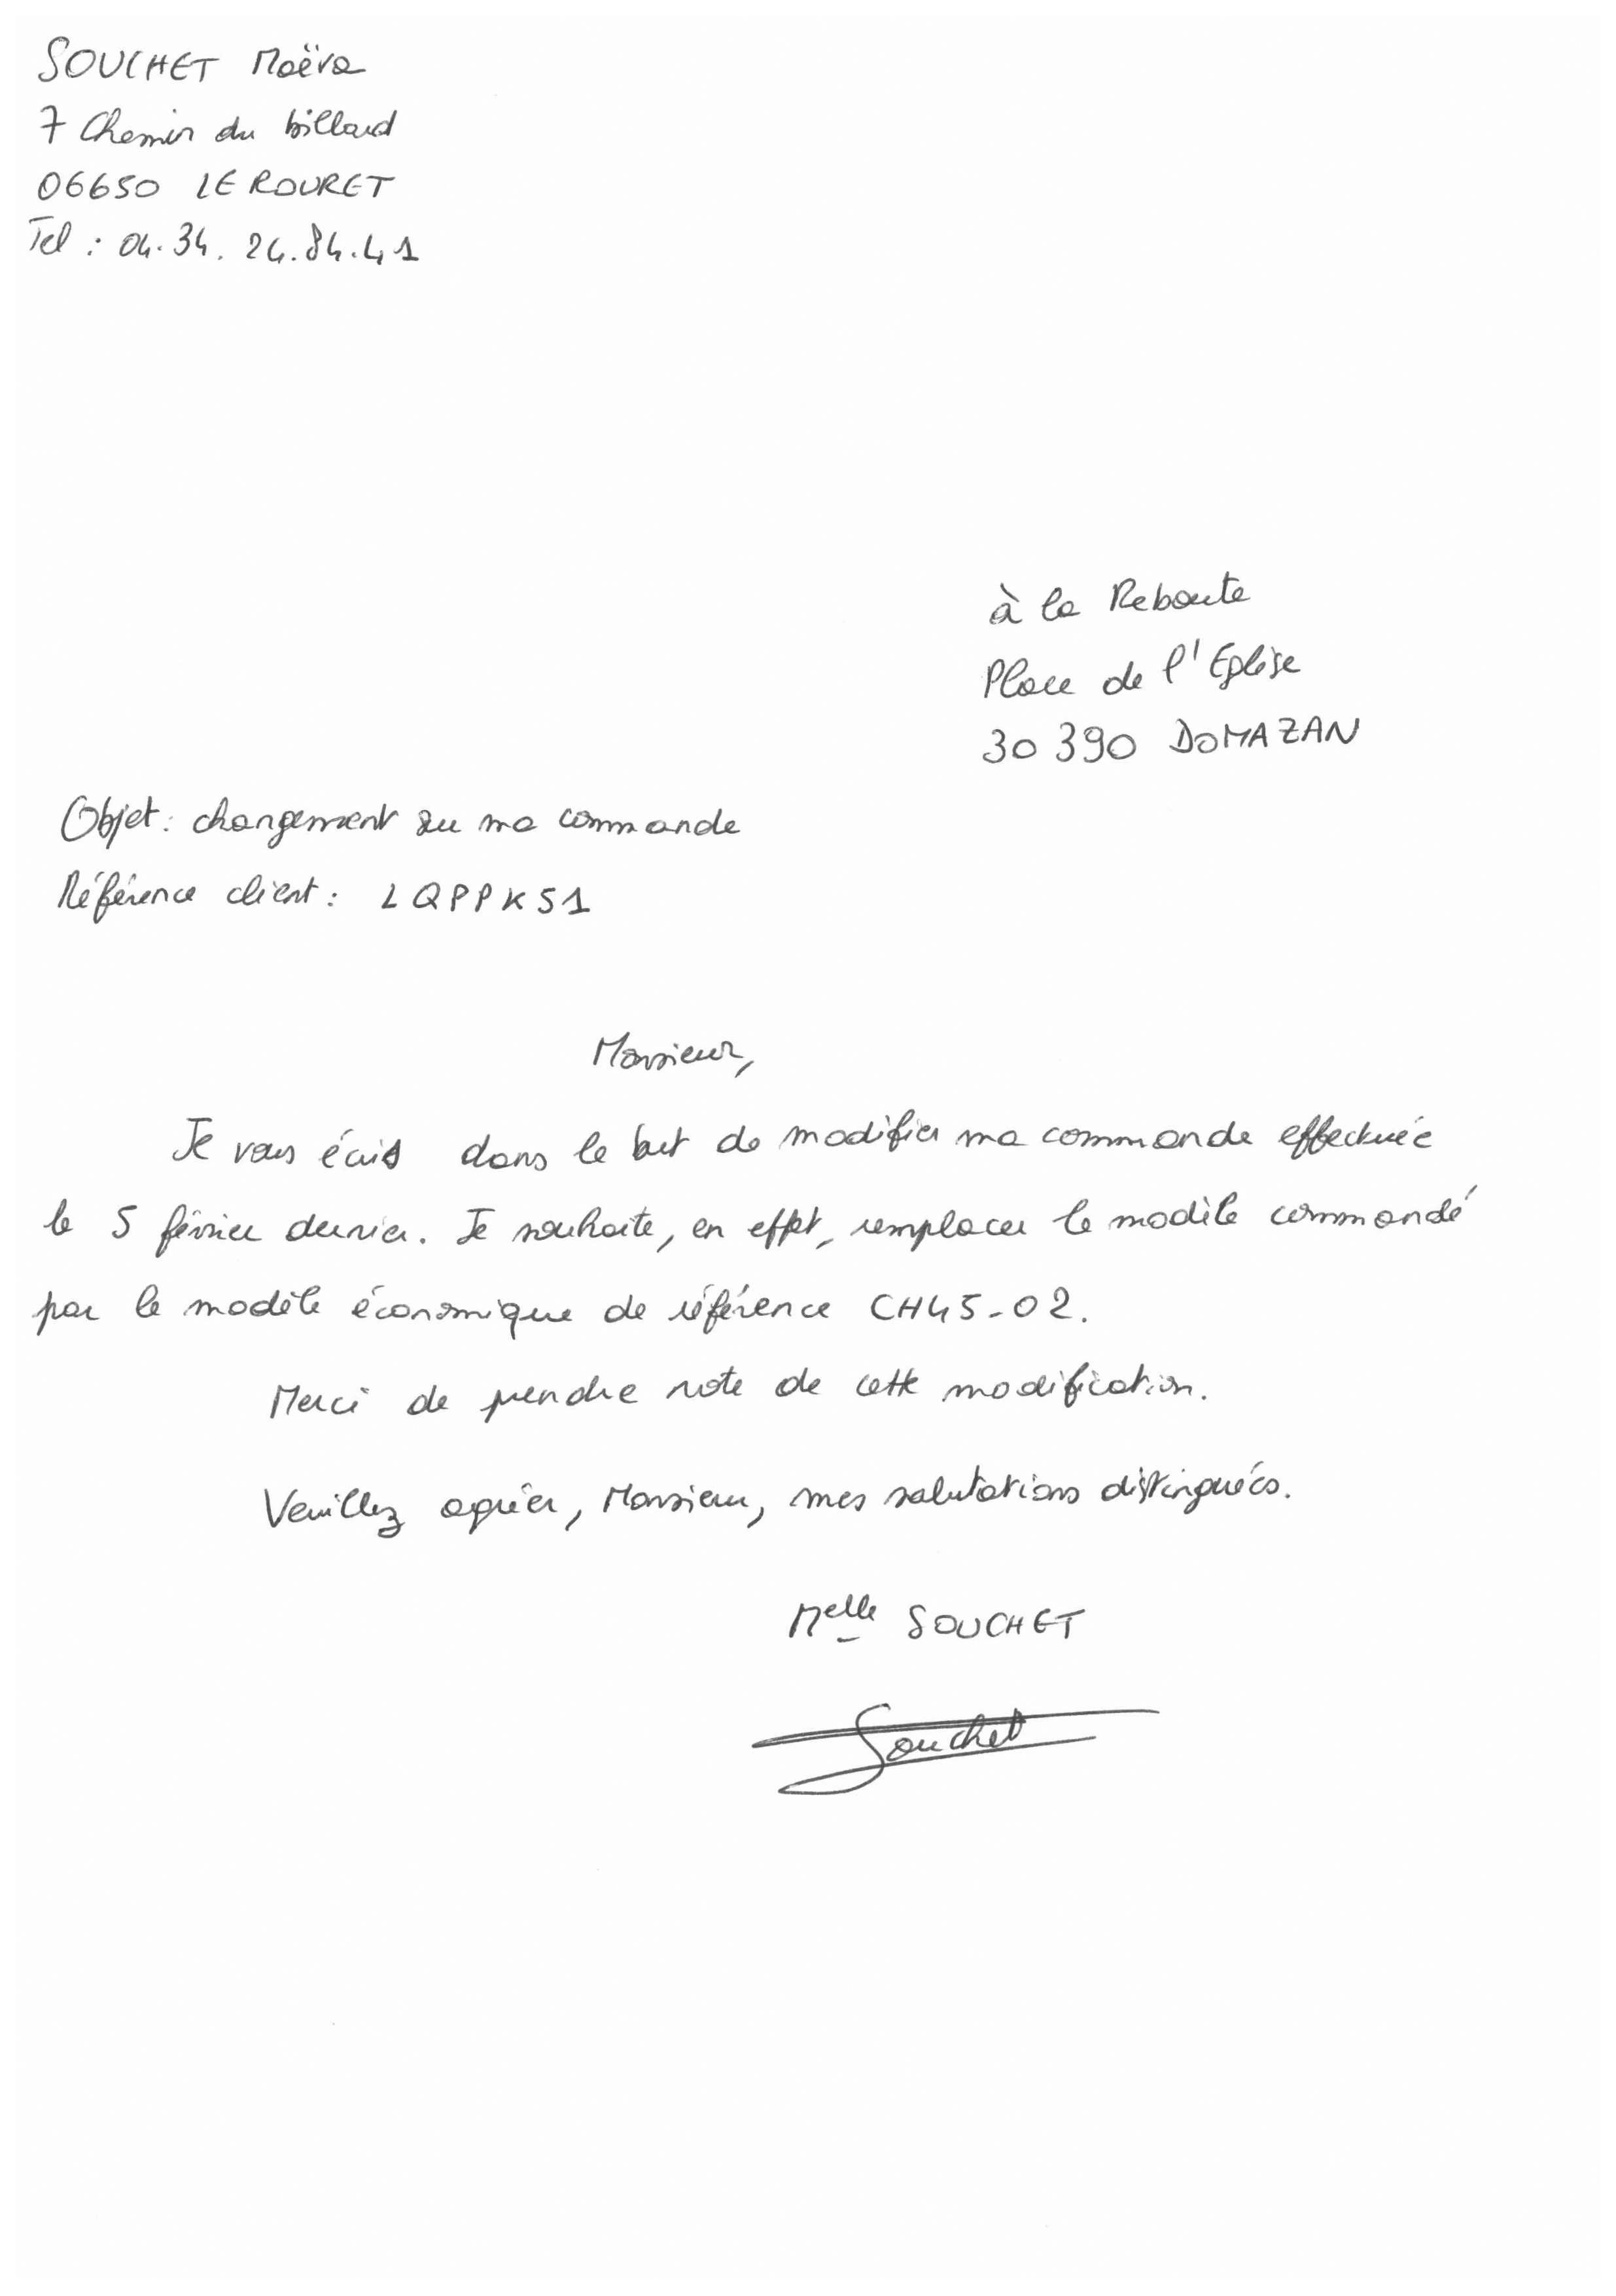 SOUCHET Maëva
7 Chemin du billard
06650 LE ROURET
Tel : 04.34.24.84.41
à la Reboute
Place de l'Eglise
30 390 DOMAZAN
Objet : changement sur ma commande
Référence client : LQPPK51
Monsieur,
Je vous écris dans le but de modifier ma commande effectuée
le 5 février dernier. Je souhaite, en effet, remplacer le modèle commandé
par le modèle économique de référence CH45-02.
Merci de prendre note de cette modification.
Veuillez agréer, Monsieur, mes salutations distinguées.
Melle SOUCHET
Souchet